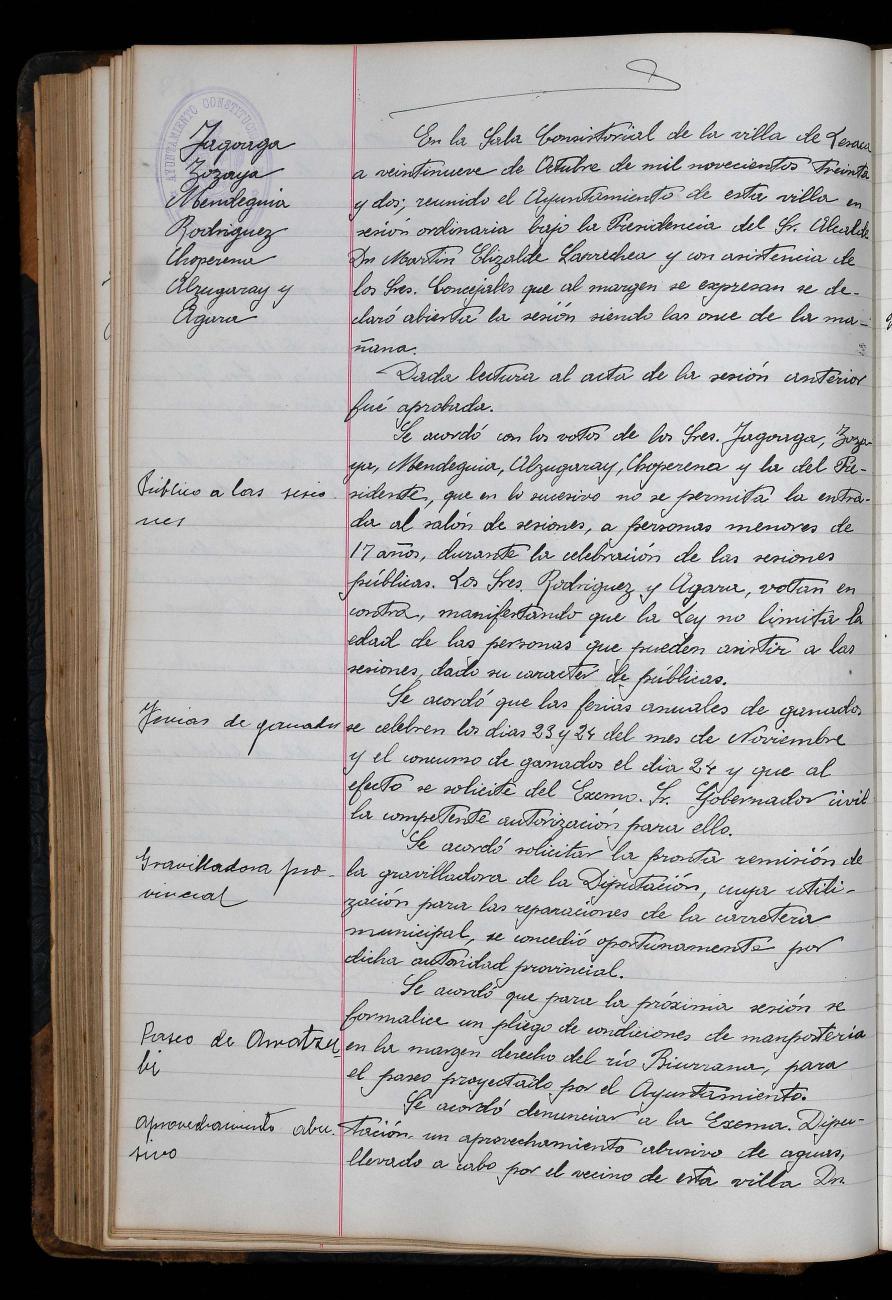 AYUNTAMIENTO CONSTITUC
Jagoaga
Zozaya
Mendeguia
Rodriguez
Choperena
Alzugaray y
Agara
En la Sala Consistorial de la villa de Lesaca
a veintinueve de Octubre de mil novecientos treinta
y dos; reunido el Ayuntamiento de esta villa en
sesión ordinaria bajo la Presidencia del Sr. Alcalde
Dn Martin Elizalde Larrechea y con asistencia de
los Sres. Concejales que al margen se expresan se de-
claró abierta la sesión siendo las once de la ma-
ñana.
Dada lectura al acta de la sesión anterior
fué aprobada.
Público a las sesio-
nes
Se acordó con los votos de los Sres. Jagoaga, Zoza-
ya, Mendeguia, Alzugaray, Choperena y la del Pre-
sidente, que en lo sucesivo no se permita la entra-
da al salón de sesiones, a personas menores de
17 años, durante la celebración de las sesiones
públicas. Los Sres. Rodriguez y Agara, votan en
contra, manifestando que la Ley no limita la
edad de las personas que pueden asistir a las
sesiones, dado su caracter de públicas.
Ferias de ganados
Se acordó que las ferias anuales de ganados
se celebren los dias 23 y 24 del mes de Noviembre
y el concurso de ganados el dia 24 y que al
efecto se solicite del Excmo. Sr. Gobernador civil
la competente autorizacion para ello.
Gravilladora pro-
vincial
Se acordó solicitar la pronta remisión de
la gravilladora de la Diputación, cuya utili-
zación para las reparaciones de la carretera
municipal, se concedió oportunamente por
dicha autoridad provincial.
Paseo de Arratzu
bi
Se acordó que para la próxima sesión se
formalice un pliego de condiciones de manposteria
en la margen derecho del río Biurrana, para
el paseo proyectado por el Ayuntamiento.
Aprovechamiento abu-
sivo
Se acordó denunciar a la Excma. Dipu-
tación un aprovechamiento abusivo de aguas,
llevado a cabo por el vecino de esta villa Dn.